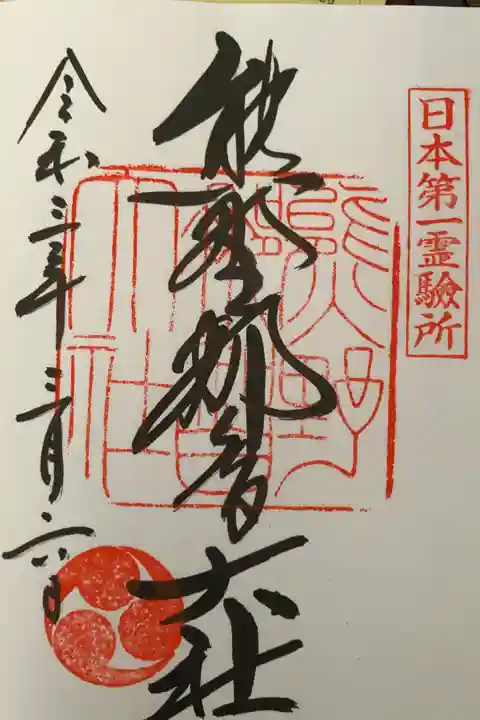 日本第一霊験所
熊野那智大社
熊野那智大社
令和三年三月六日